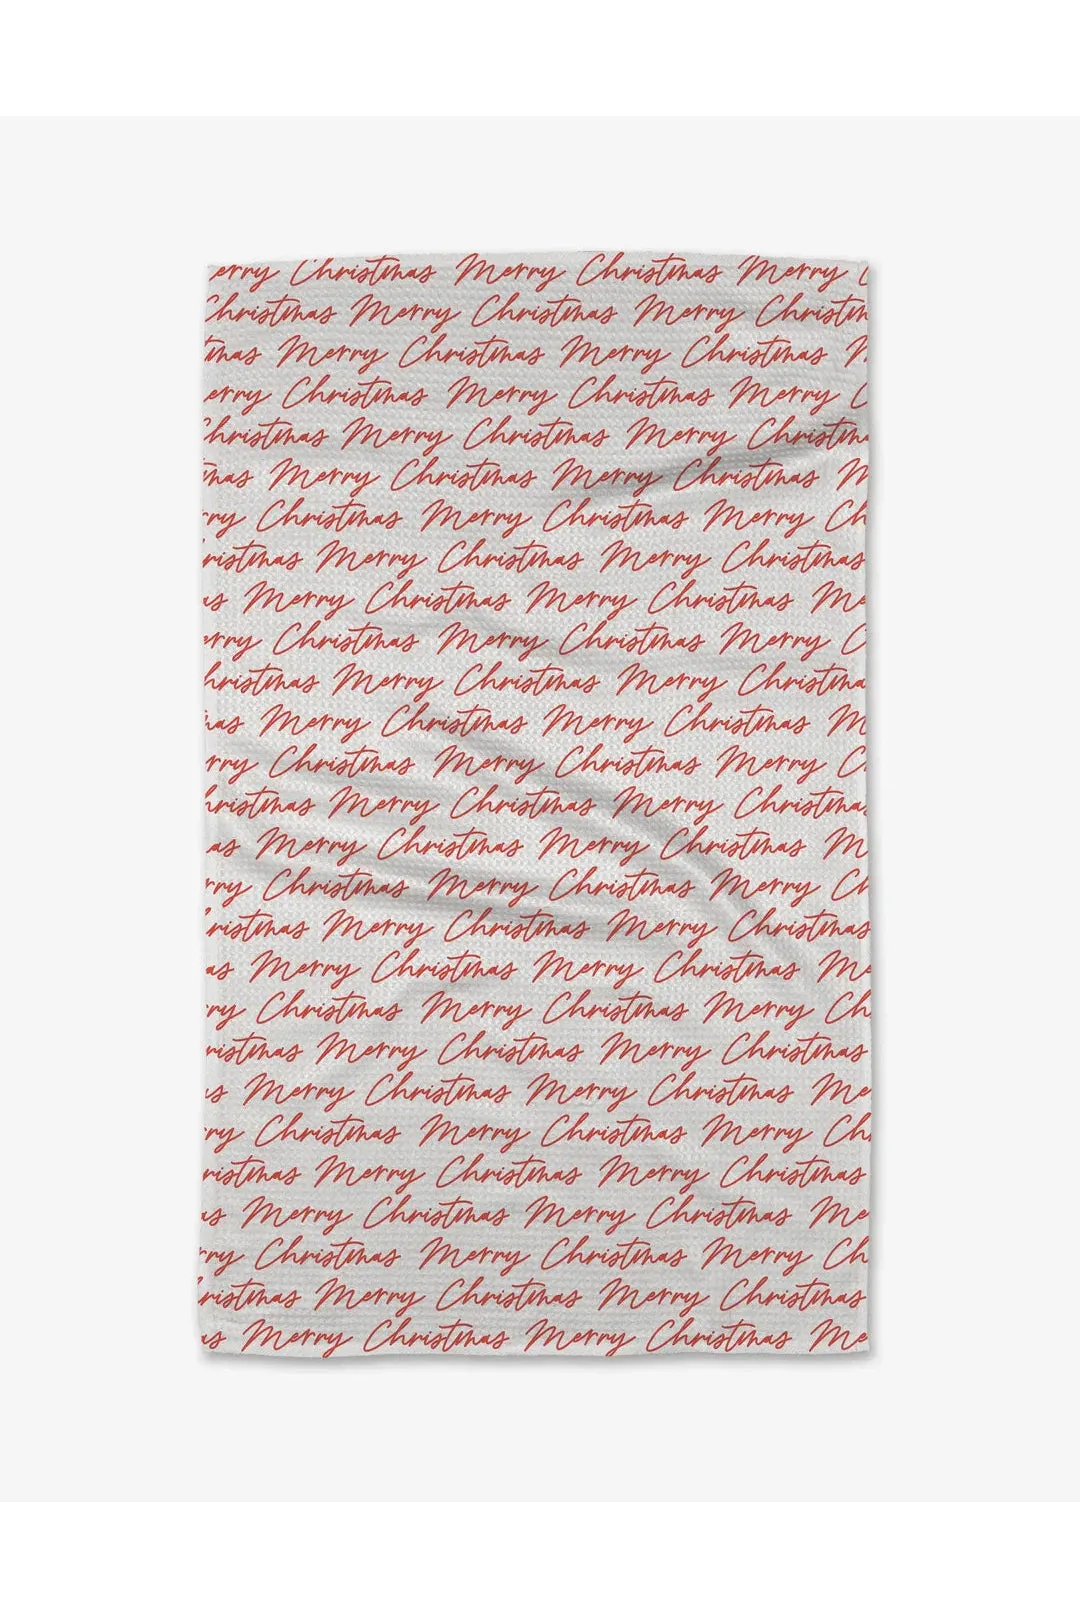 erry Christmas Merry Christmas Merry C
Christmas Merry Christmas Merry Christm
tmas Merry Christmas Merry Christmas M
erry Christmas Merry Christmas Merry C
Christmas Merry Christmas Merry Christma
tmas Merry Christmas Merry Christmas M
rry Christmas Merry Christmas Merry Ch
ristmas Merry Christmas Merry Christmas
as Merry Christmas Merry Christmas Me
erry Christmas Merry Christmas Merry C
hristmas Merry Christmas Merry Christma
as Merry Christmas Merry Christmas M
rry Christmas Merry Christmas Merry C
hristmas Merry Christmas Merry Christmas
as Merry Christmas Merry Christmas M
rry Christmas Merry Christmas Merry Ch
ristmas Merry Christmas Merry Christmas
as Merry Christmas Merry Christmas Me
ry Christmas Merry Christmas Merry Ch
ristmas Merry Christmas Merry Christmas
as Merry Christmas Merry Christmas Me
ry Christmas Merry Christmas Merry Ch
ristmas Merry Christmas Merry Christmas
as Merry Christmas Merry Christmas Me
rry Christmas Merry Christmas Merry Ch
ristmas Merry Christmas Merry Christmas
as Merry Christmas Merry Christmas Me